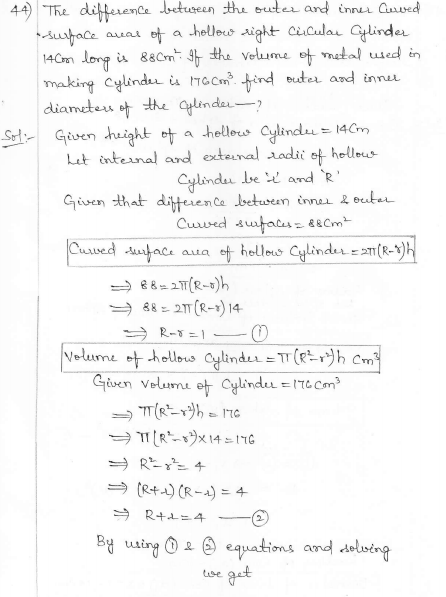 44) The difference between the outer and inner Curved
surface areas of a hollow right Circular Cylinder
14Cm long is 88Cm². If the volume of metal used in
making Cylinder is 176Cm³. find outer and inner
diameters of the Cylinder—?
Sol:- Given height of a hollow Cylinder = 14Cm
Let internal and external radii of hollow
Cylinder be 'r' and 'R'
Given that difference between inner & outer
Curved surfaces = 88Cm²
Curved surface area of hollow Cylinder = 2π(R-r)h
⇒ 88 = 2π(R-r)h
⇒ 88 = 2π(R-r)14
⇒ R-r = 1 —— ①
Volume of hollow Cylinder = π(R²-r²)h Cm³
Given volume of Cylinder = 176Cm³
⇒ π(R²-r²)h = 176
⇒ π(R²-r²)×14 = 176
⇒ R²-r² = 4
⇒ (R+r)(R-r) = 4
⇒ R+r = 4 —— ②
By using ① & ② equations and solving
we get